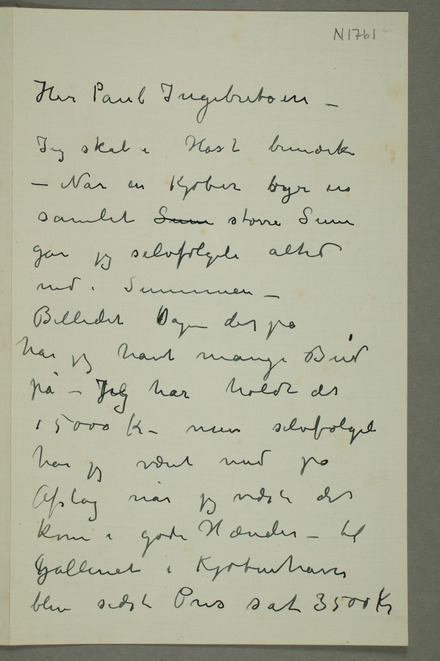 N1761
Herr Paul Ingebretsen –
Jeg skal i Hast bemærke
– Når en Kjøber byr en
samlet Sum større Sum
går jeg selvfølgeli altid
ned i Summen –
Billedet Dagen der på
har jeg havt mange Bud
på – Jeg har holdt det
i 5000 K – men selvfølgeli
har jeg vært med på
Afslag når jeg vidste det
kom i gode Hænder – til
Galleriet i Kjøbenhavn
blev sidst Pris sat 3500 Kr